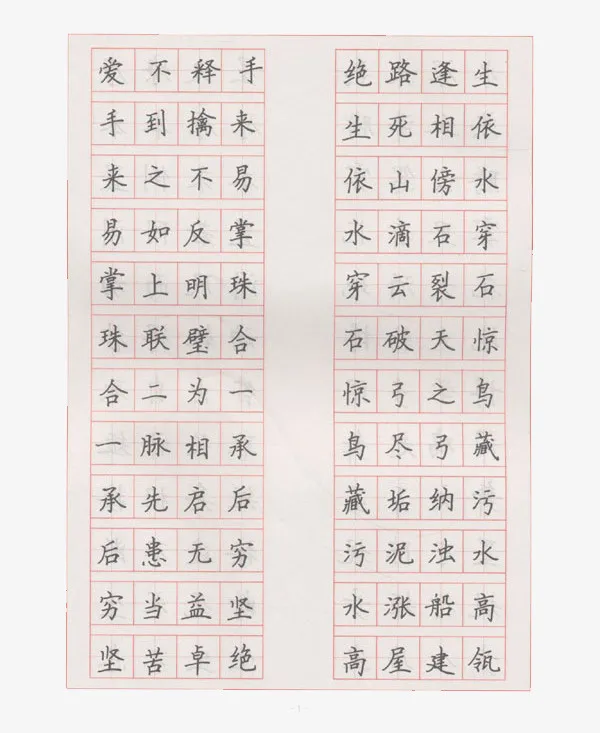 爱不释手
手到擒来
来之不易
易如反掌
掌上明珠
珠联璧合
合二为一
一脉相承
承先启后
后患无穷
穷当益坚
坚苦卓绝
绝路逢生
生死相依
依山傍水
水滴石穿
穿云裂石
石破天惊
惊弓之鸟
鸟尽弓藏
藏垢纳污
污泥浊水
水涨船高
高屋建瓴
- 1 -